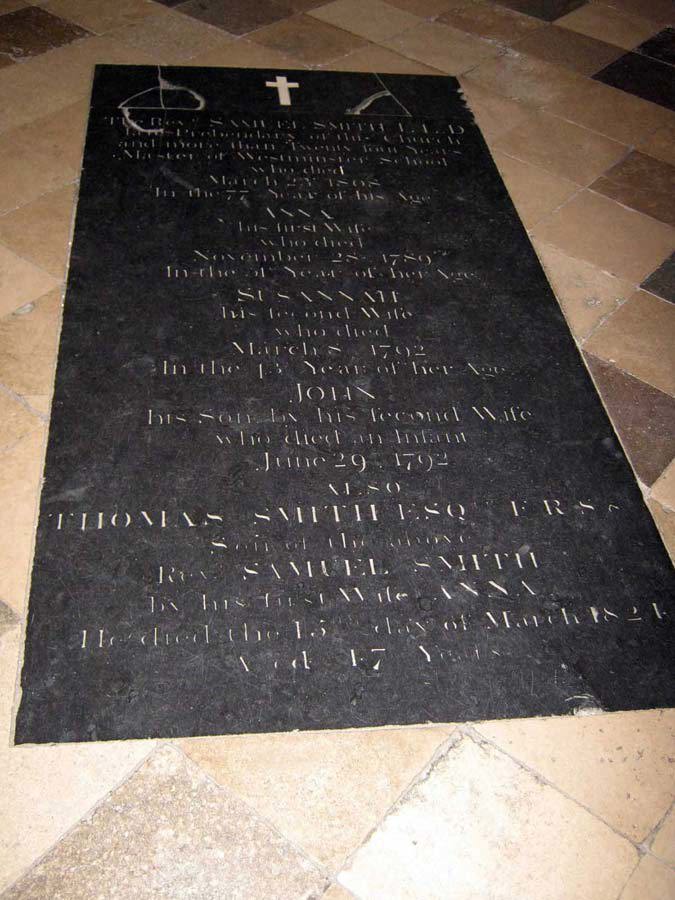 The Rev.d SAMUEL SMITH L.L.D
Prebendary of this Church
and more than Twenty four Years
Master of Westminster School
who died
March 1808
In the 77 Year of his Age
ANNA
his first Wife
who died
November 28 1789
In the Year of her Age
SUSANNAH
his second Wife
who died
March 8 1792
In the 43 Year of her Age
JOHN
his Son by his second Wife
who died an Infant
June 29 1792
ALSO
THOMAS SMITH ESQ.R F.R.S &c
Son of the above
Rev.d SAMUEL SMITH
by his first Wife ANNA
He died the 15th day of March 1824
Aged 47 Years